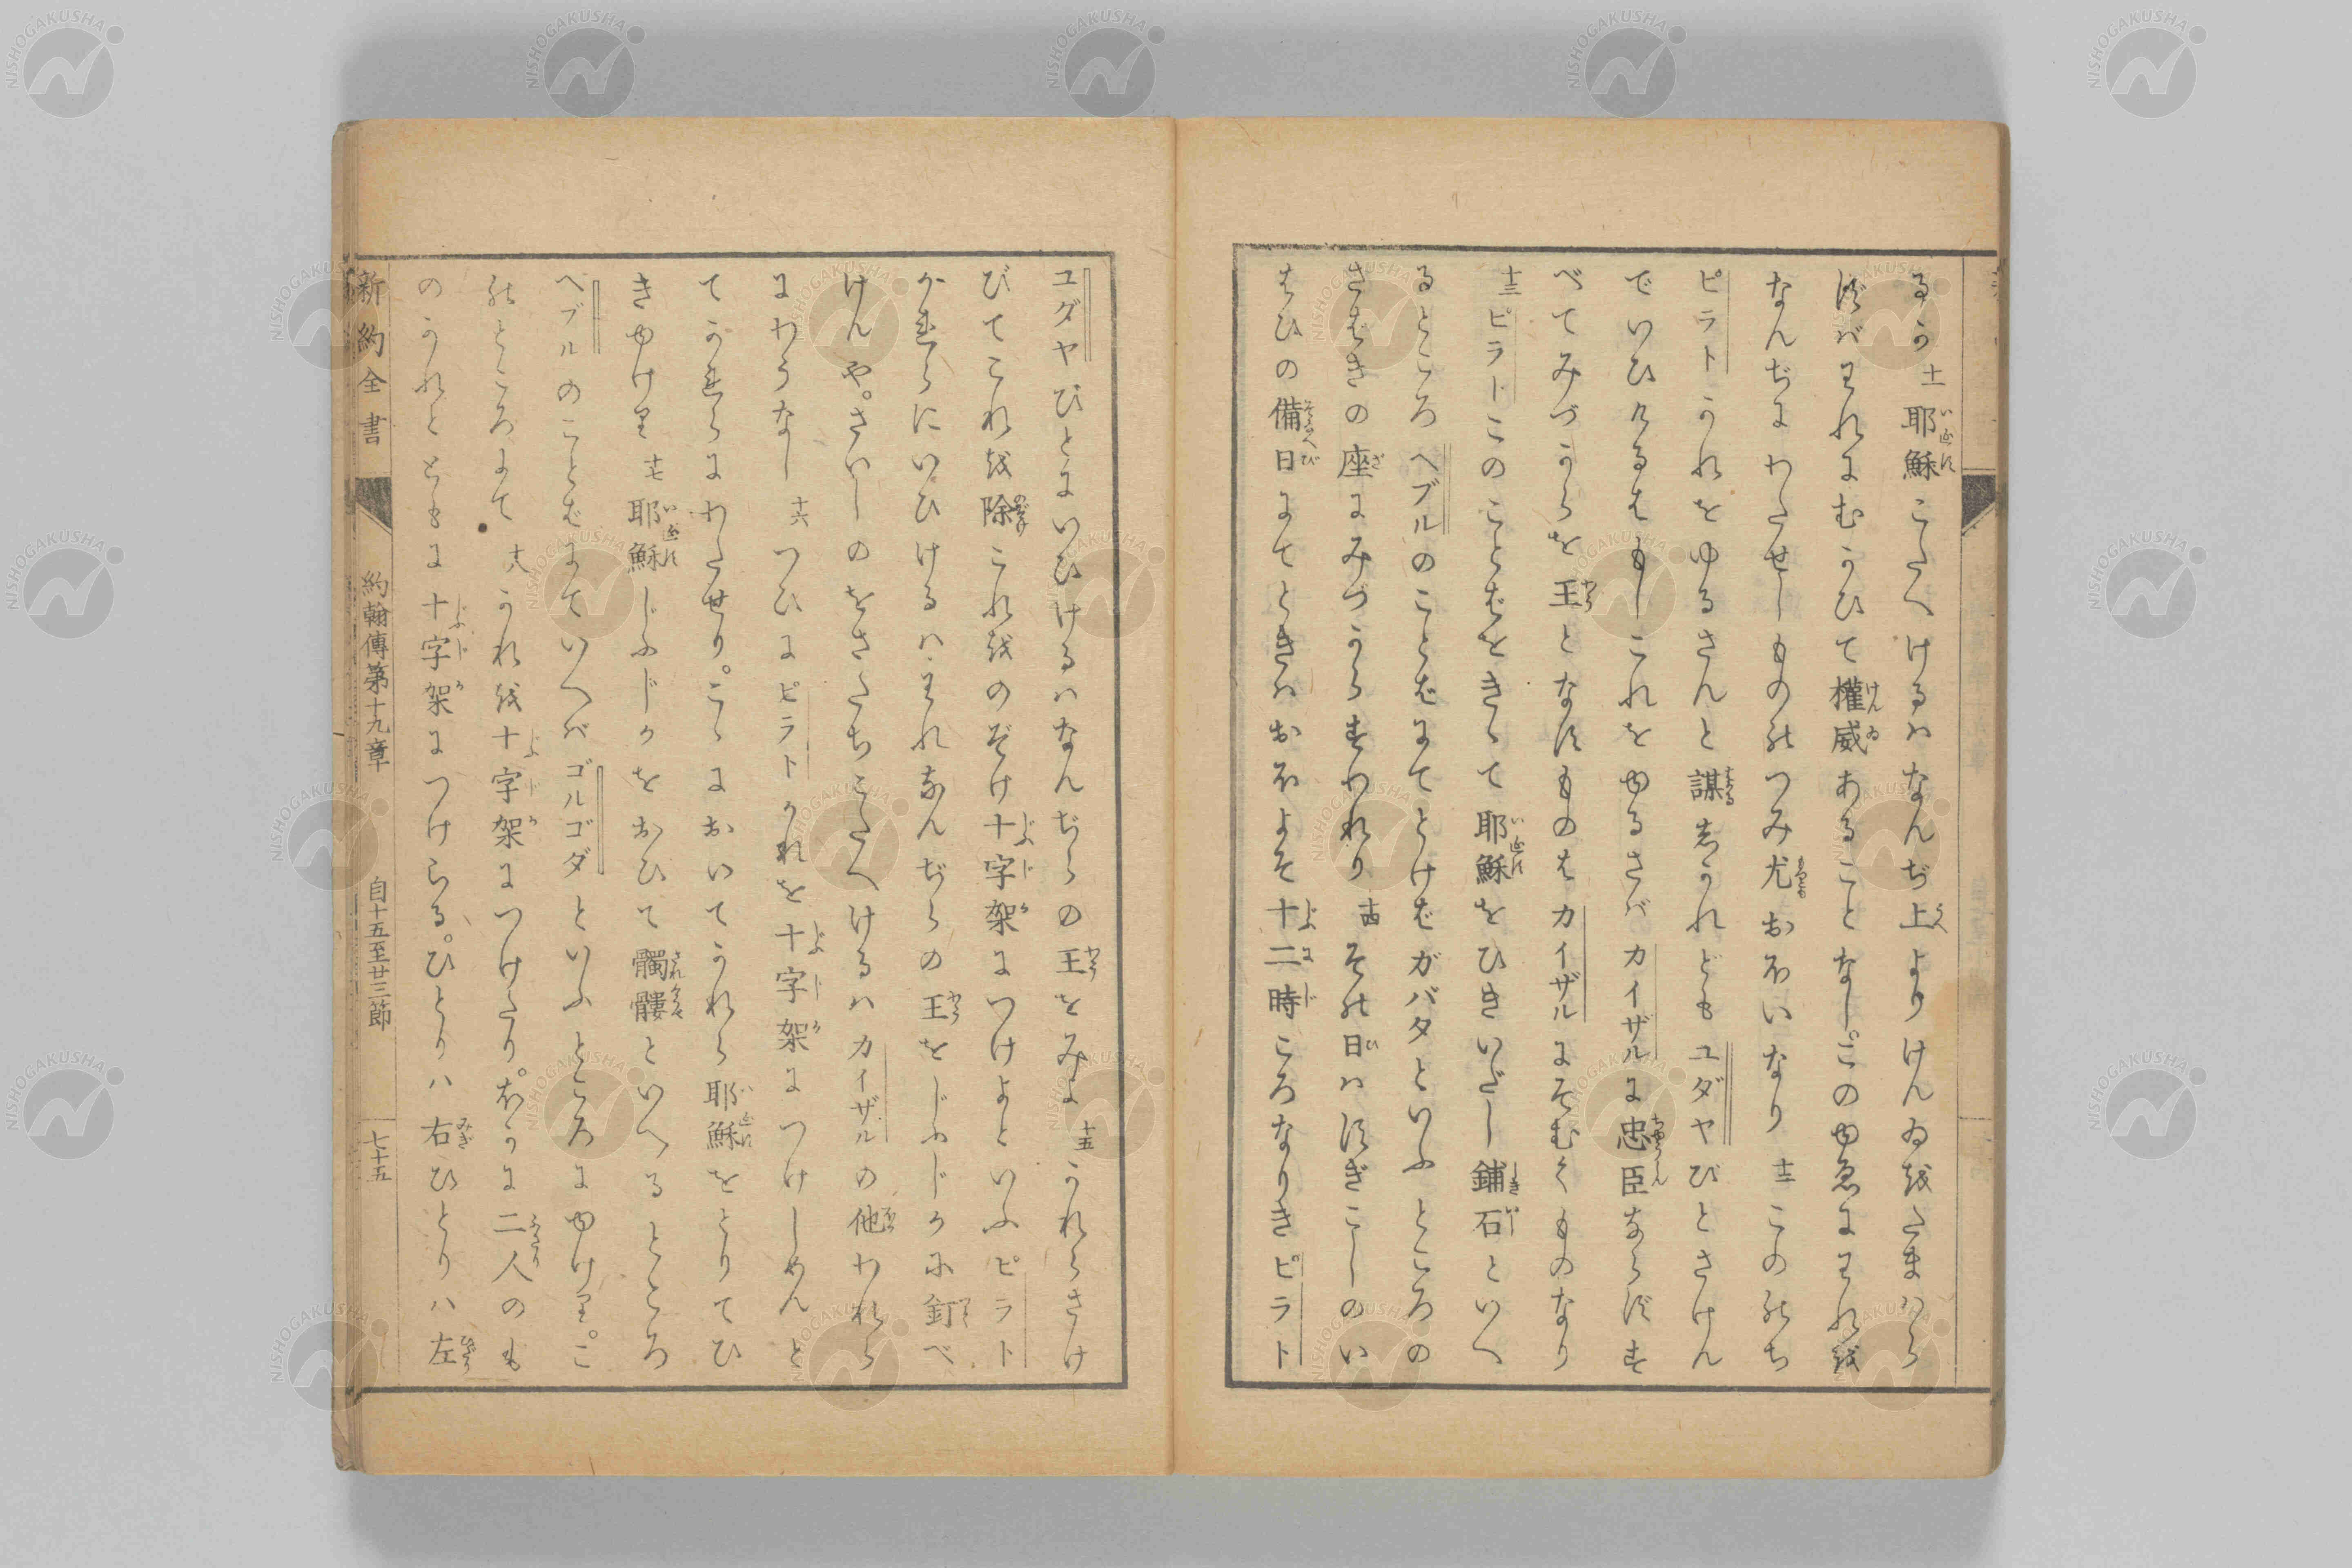 るか 十一 耶穌こたへけるハなんぢ上よりけんゐをたまハら
ずバわれにむかひて權威あることなし。このゆゑにわれを
なんぢにわたせしものゝつみ尤おほいなり 十二 このゝち
ピラトかれをゆるさんと謀しかれどもユダヤびとさけん
でいひけるはもしこれをゆるさバカイザルに忠臣ならずす
べてみづからを王となすものはカイザルにそむくものなり
十三 ピラトこのことばをきゝて耶穌をひきいだし鋪石といへ
るところヘブルのことばにてとけばガバタといふところの
さばきの座にみづからすわれり 十四 その日ハすぎこしのい
はひの備日にてときハおほよそ十二時ころなりきピラト
ユダヤびとにいひけるハなんぢらの王をみよ 十五 かれらさけ
びてこれを除これをのぞけ十字架につけよといふピラト
かれらにいひけるハわれなんぢらの王をじふじかに釘べ
けんや。さいしのをさたちこたへけるハカイザルの他われら
にわうなし 十六 つひにピラトかれを十字架につけしめんと
てかれらにわたせり。こゝにおいてかれら耶穌をとりてひ
きゆけり 十七 耶穌じふじかをおひて髑髏といへるところ
ヘブルのことばにていへバゴルゴダといふところにゆけり。こ
のところにて 十八 かれを十字架につけたり。ほかに二人のも
のかれとともに十字架につけらる。ひとりハ右ひとりハ左
新約全書 約翰傳第十九章 自十五至廿三節 七十五